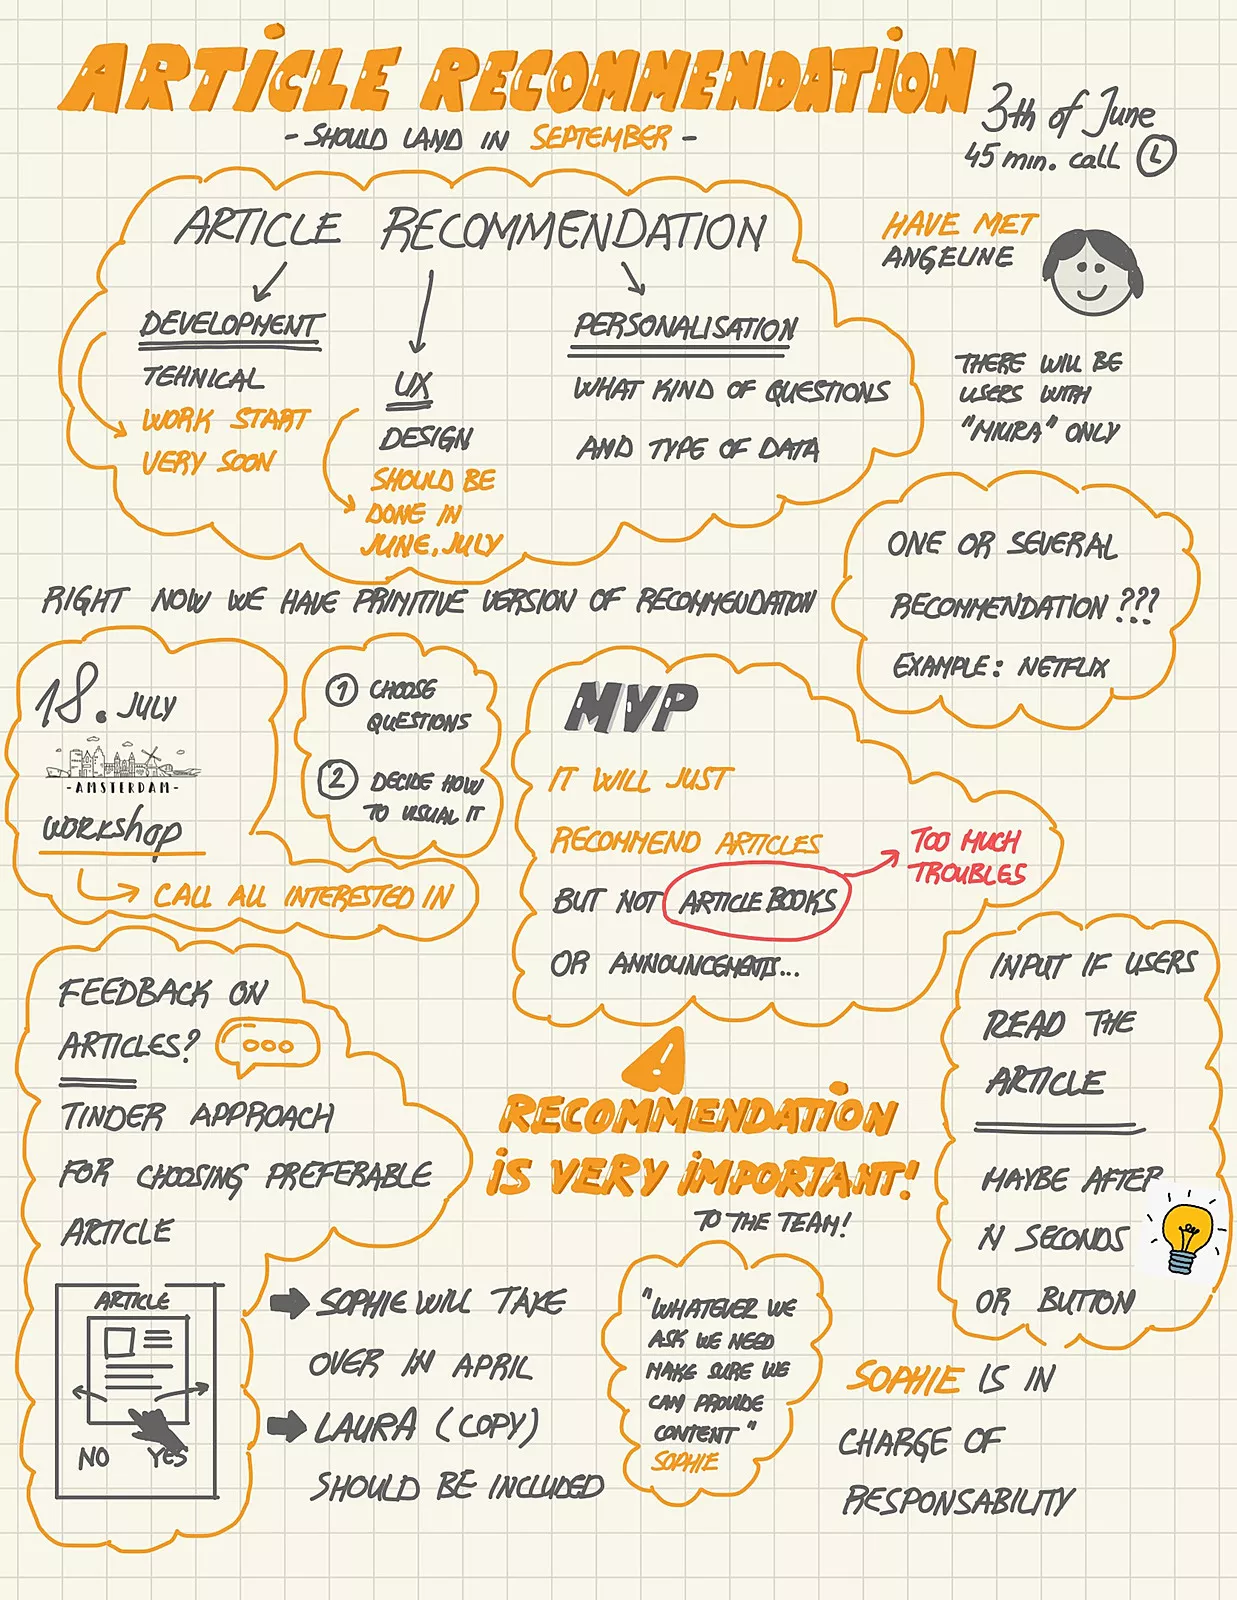 ARTICLE RECOMMENDATION
- SHOULD LAND IN SEPTEMBER -
3th of June
45 min. call
HAVE MET
ANGELINE
THERE WILL BE
USERS WITH
"MIURA" ONLY
ARTICLE RECOMMENDATION
DEVELOPMENT
TEHNICAL
WORK START
VERY SOON
UX
DESIGN
SHOULD BE
DONE IN
JUNE, JULY
PERSONALISATION
WHAT KIND OF QUESTIONS
AND TYPE OF DATA
ONE OR SEVERAL
RECOMMENDATION ???
EXAMPLE: NETFLIX
RIGHT NOW WE HAVE PRIMITIVE VERSION OF RECOMMEUDATION
18. JULY
-AMSTERDAM-
workshop
CALL ALL INTERESTED IN
1 CHOOSE
QUESTIONS
2 DECIDE HOW
TO VISUAL IT
MVP
IT WILL JUST
RECOMMEND ARTICLES
BUT NOT ARTICLE BOOKS
OR ANNOUNCEMENTS...
TOO MUCH
TROUBLES
FEEDBACK ON
ARTICLES?
TINDER APPROACH
FOR CHOOSING PREFERABLE
ARTICLE
ARTICLE
NO YES
RECOMMENDATION
IS VERY IMPORTANT!
TO THE TEAM!
INPUT IF USERS
READ THE
ARTICLE
MAYBE AFTER
N SECONDS
OR BUTTON
SOPHIE WILL TAKE
OVER IN APRIL
LAURA (COPY)
SHOULD BE INCLUDED
"WHATEVER WE
ASK WE NEED
MAKE SURE WE
CAN PROVIDE
CONTENT"
SOPHIE
SOPHIE IS IN
CHARGE OF
RESPONSABILITY